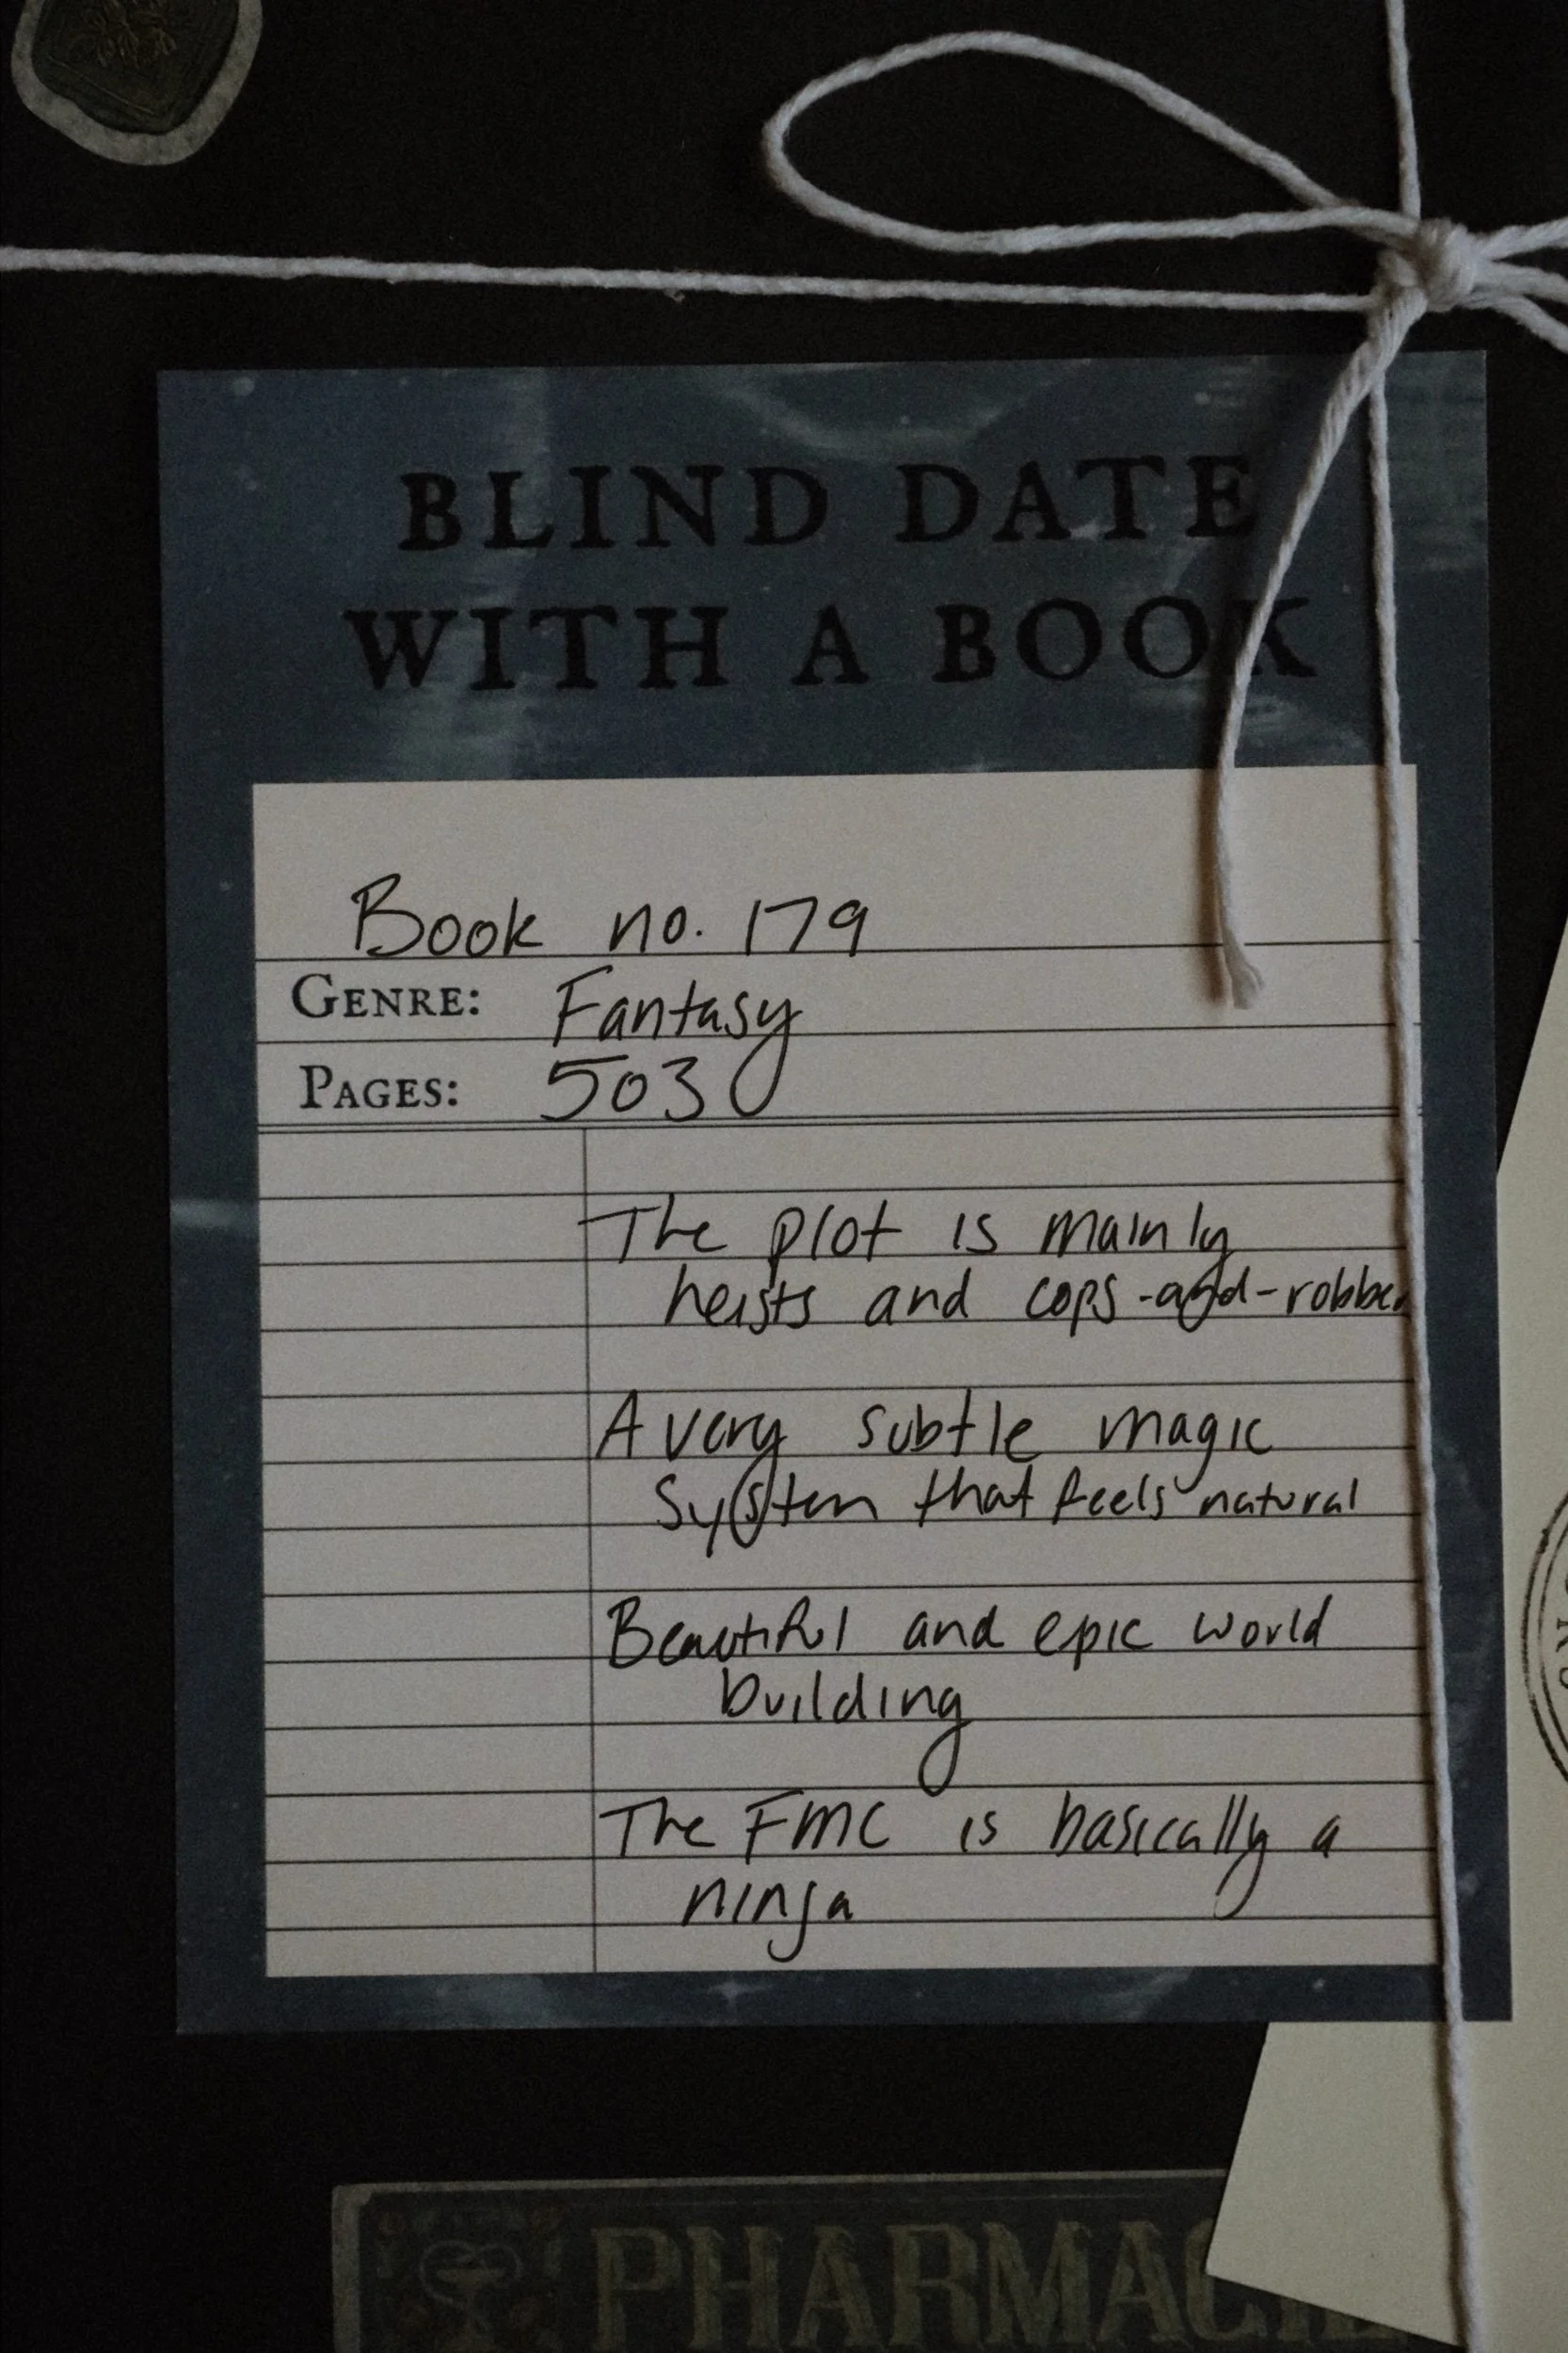 BLIND DATE
WITH A BOOK
Book no. 179
GENRE: Fantasy
PAGES: 503
The plot is mainly
heists and cops-and-robber
A very subtle magic
System that feels natural
Beautiful and epic world
building
The FMC is basically a
ninja
PHARMACIE